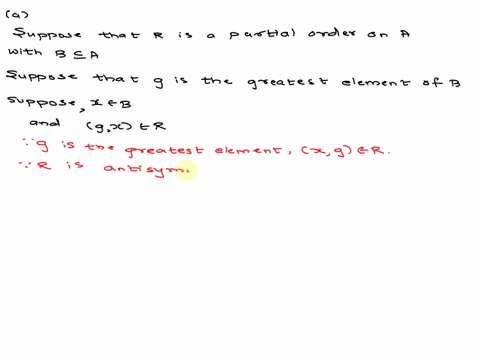 (a)
Suppose that R is a partial order on A
with B ⊆ A
Suppose that g is the greatest element of B
Suppose, x ∈ B
and (g,x) ∈ R
∵ g is the greatest element, (x,g) ∈ R.
∵ R is antisym